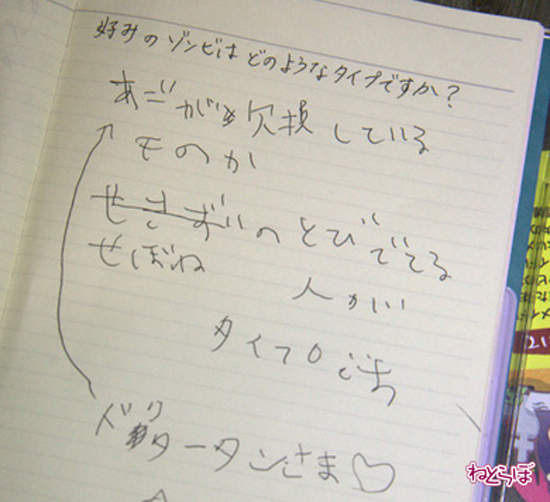 好みのゾンビはどのようなタイプですか?
あごが欠損している
ものか
せきずいのとびでてる
せぼね
人が
タイプ
タータンさま♡
ねとらぼ